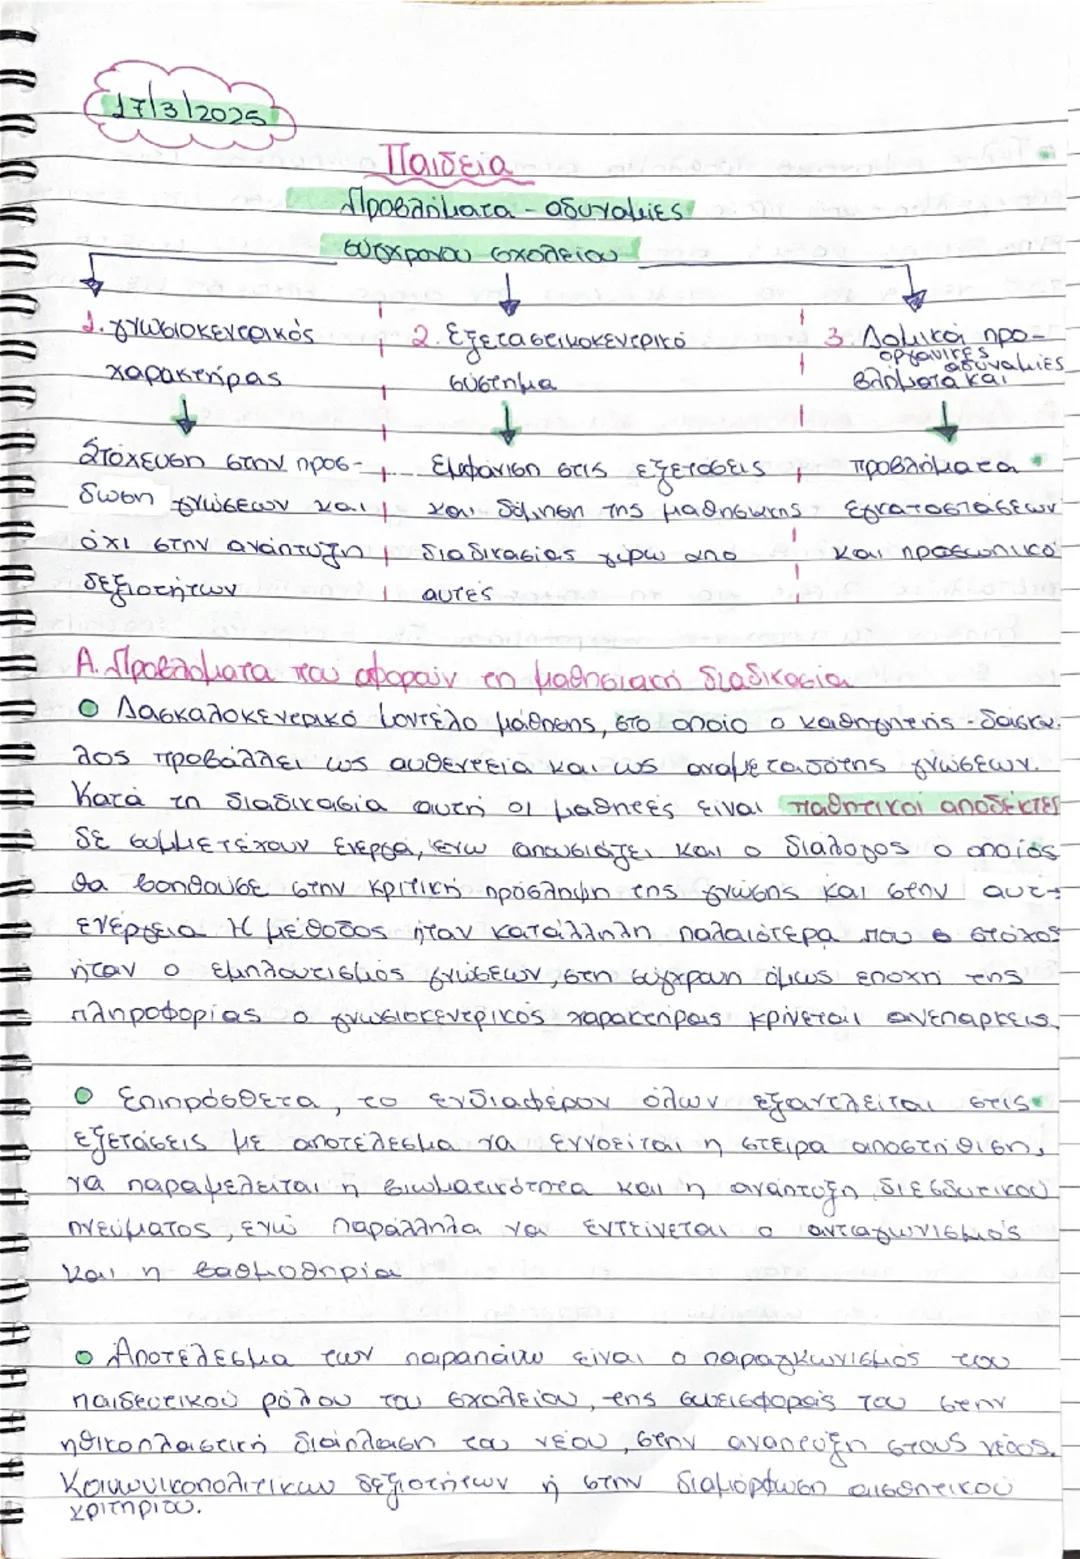 17/3/2025
Παιδεία
Προβλήματα - αδυναμίες
σύγχρονου σχολείου
1. γνωσιοκεντρικός
χαρακτήρας
Στόχευση στην προσ-
δωση γνώσεων και
όχι στην ανάπτυξη
δεξιοτήτων
2. Εξετασεικοκεντρικό
σύστημα
Εμφάνιση στις εξετάσεις
και δόμηση της μαθησιακης
διαδικασίας γύρω απο
αυτές
3. Δομικοί προ-
οργανικές
αδυναμίες
βλήματα και
προβλήματα
εγκαταστάσεων
και προσωπικό
Α. Προβλήματα που αφορούν τη μαθησιακή διαδικασία
Δασκαλοκεντρικό μοντέλο μάθησης, στο οποίο ο καθηγητής - δάσκα-
λος προβάλλει ως αυθεντεία και ως αναμεταδότης γνώσεων.
Κατά τη διαδικασία αυτή οι μαθητές είναι παθητικοί αποδέκτες
δε συμμετέχουν ενεργά, ενω απουσιάζει και ο διάλογος ο οποίος
θα βοηθούσε στην κριτική πρόσληψη της γνώσης και στην αυτ-
ενέργεια Η μέθοδος ήταν κατάλληλη παλαιότερα που ο στόχος
ήταν ο εμπλουτισμός γνώσεων, στη σύγχρονη όμως εποχή της
πληροφορίας ο γνωσιοκεντρικός χαρακτήρας κρίνεται ανεπαρκεις.
Επιπρόσθετα, το ενδιαφέρον όλων εξαντλείται στις
εξετάσεις με αποτέλεσμα να εννοείται η στείρα αποστήθιση,
να παραμελείται η βιωματικότητα και η ανάπτυξη διεσδυτικού
πνεύματος, ενώ παράλληλα να εντείνεται ο ανταγωνισμός
και η βαθμοθηρία
Αποτέλεσμα των παραπάνω είναι ο παραγκωνισμός του
παιδευτικού ρόλου του σχολείου, της συνεισφοράς του στην
ηθικοπλαστική διάπλαση του νέου, στην αναπτυξη στους νέους
Κοινωνικοπολιτικων δεξιοτήτων ή στην διαμόρφωση αισθητικού
κριτηρίου.